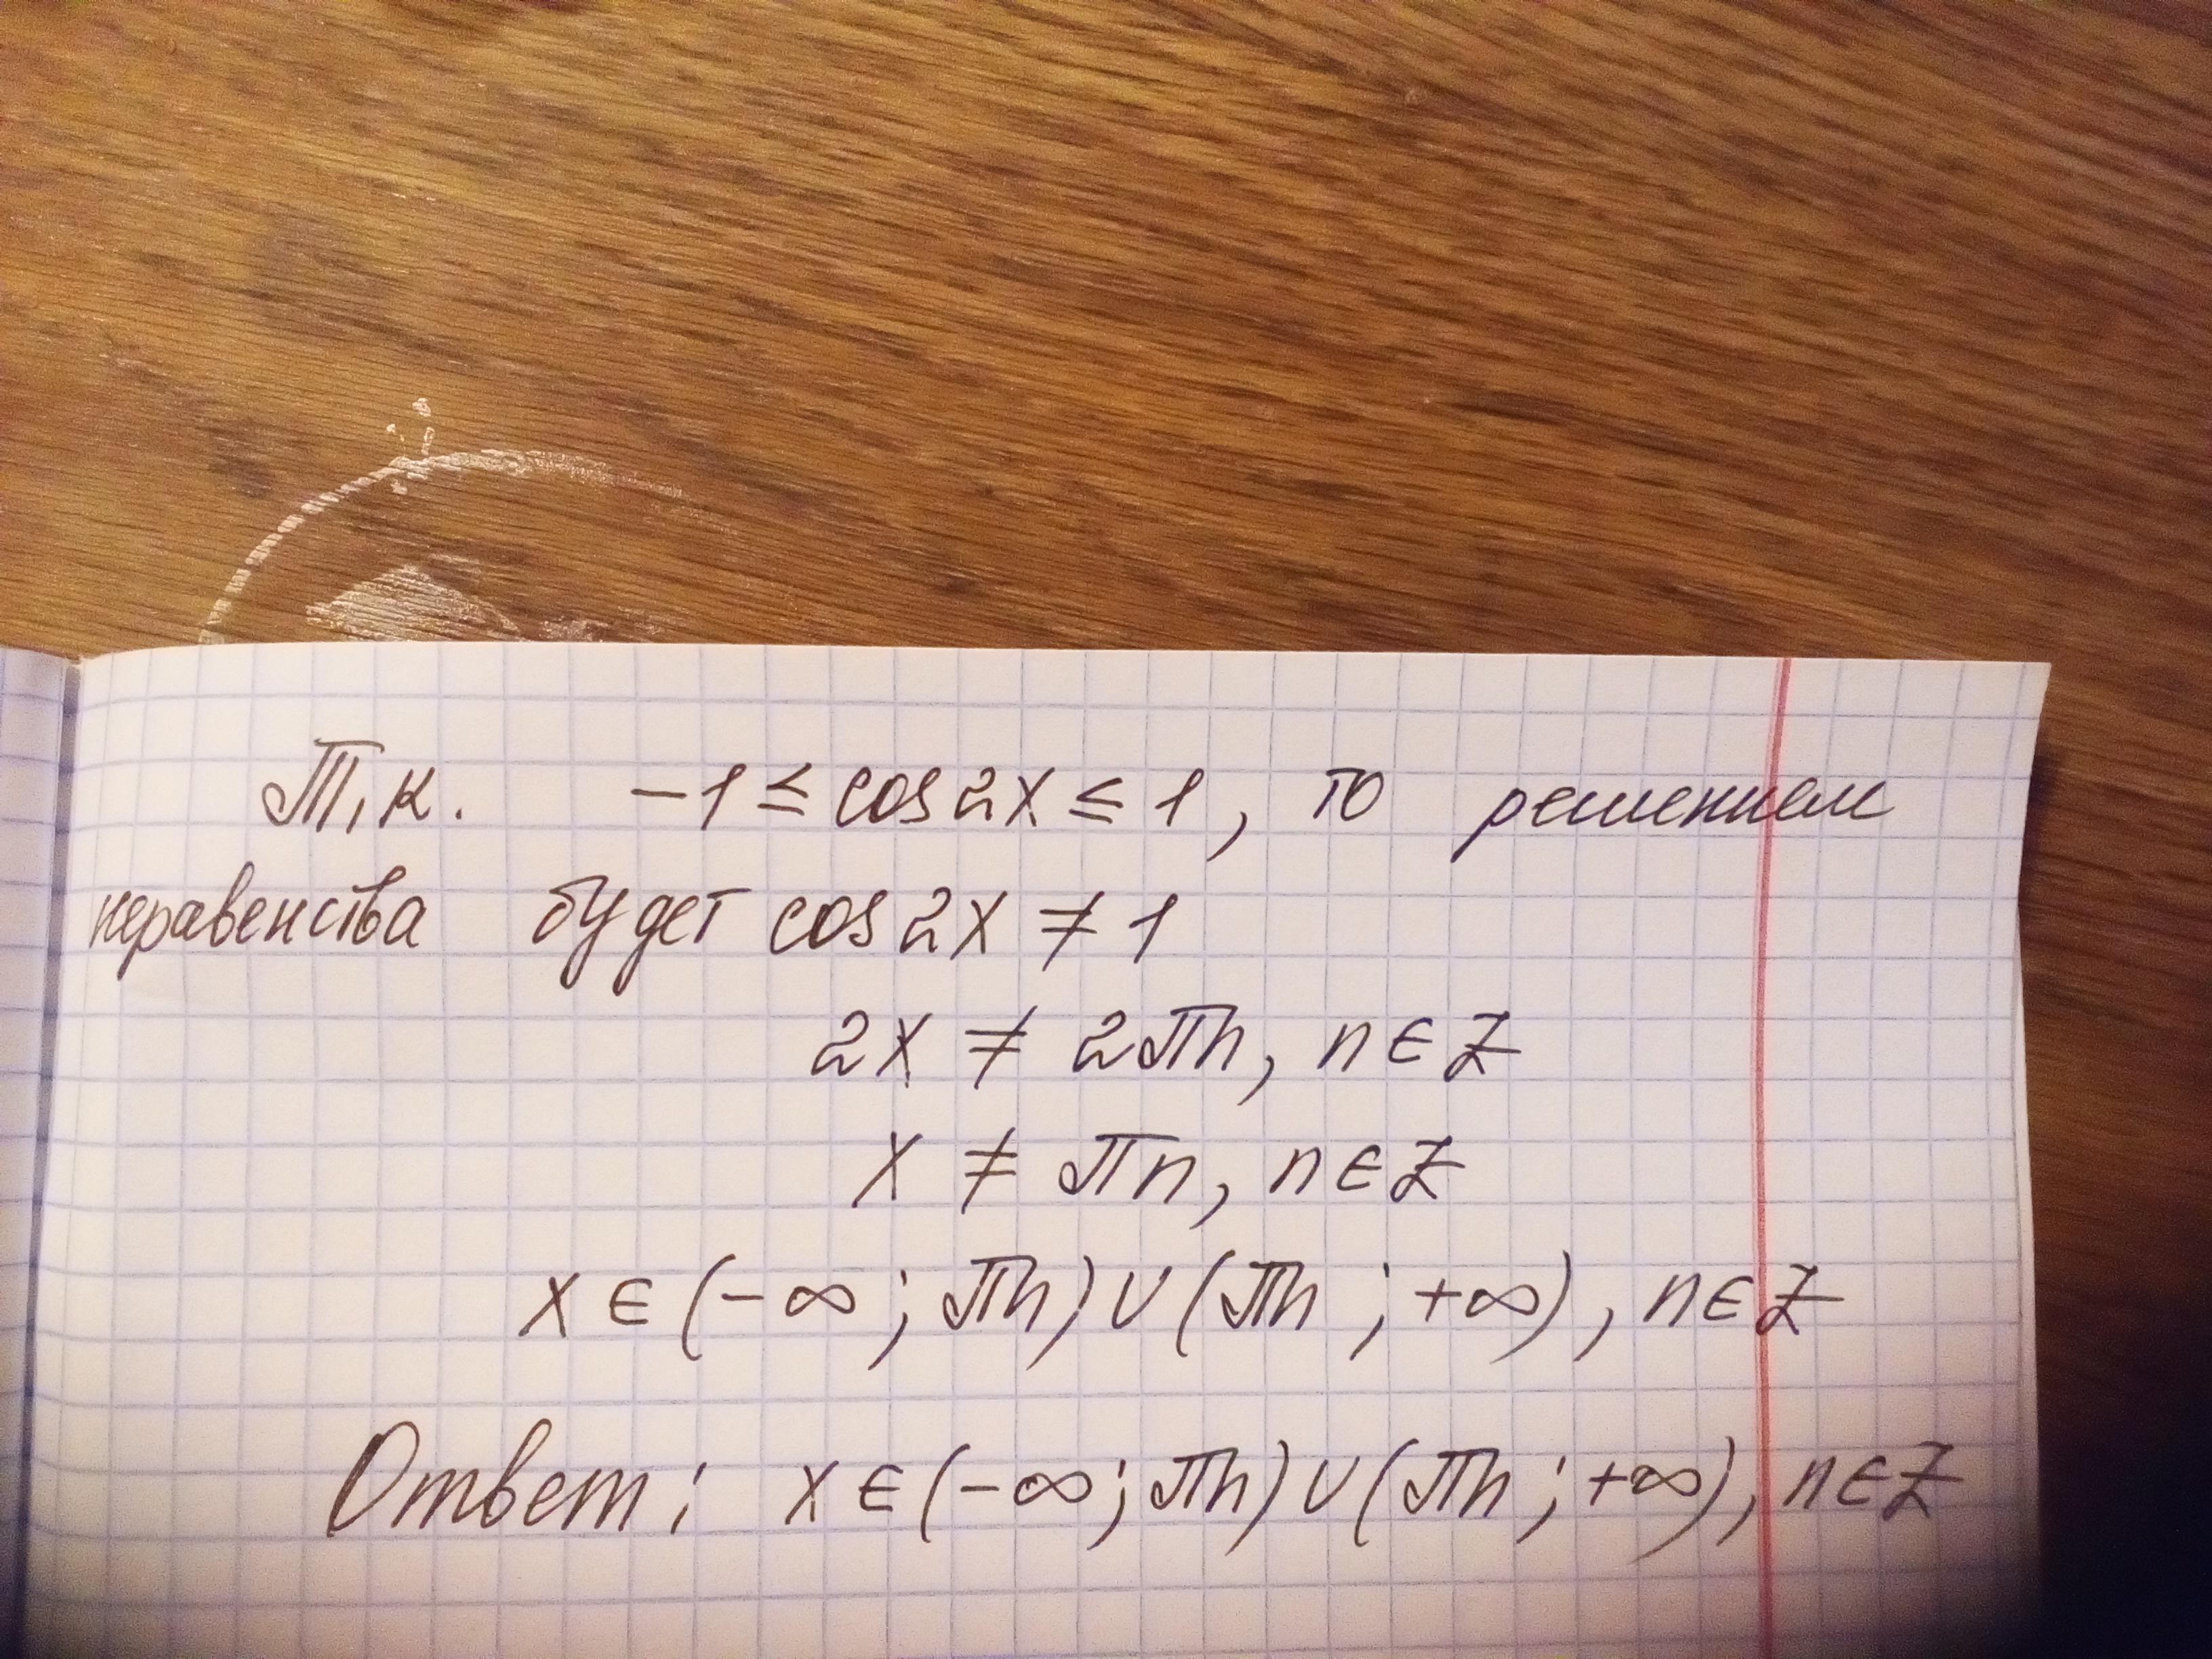 Т.к. -1 ≤ cos 2x ≤ 1, то решением
неравенства будет cos 2x ≠ 1
2x ≠ 2πn, n ∈ Z
x ≠ πn, n ∈ Z
x ∈ (-∞; πn) ∪ (πn; +∞), n ∈ Z
Ответ: x ∈ (-∞; πn) ∪ (πn; +∞), n ∈ Z